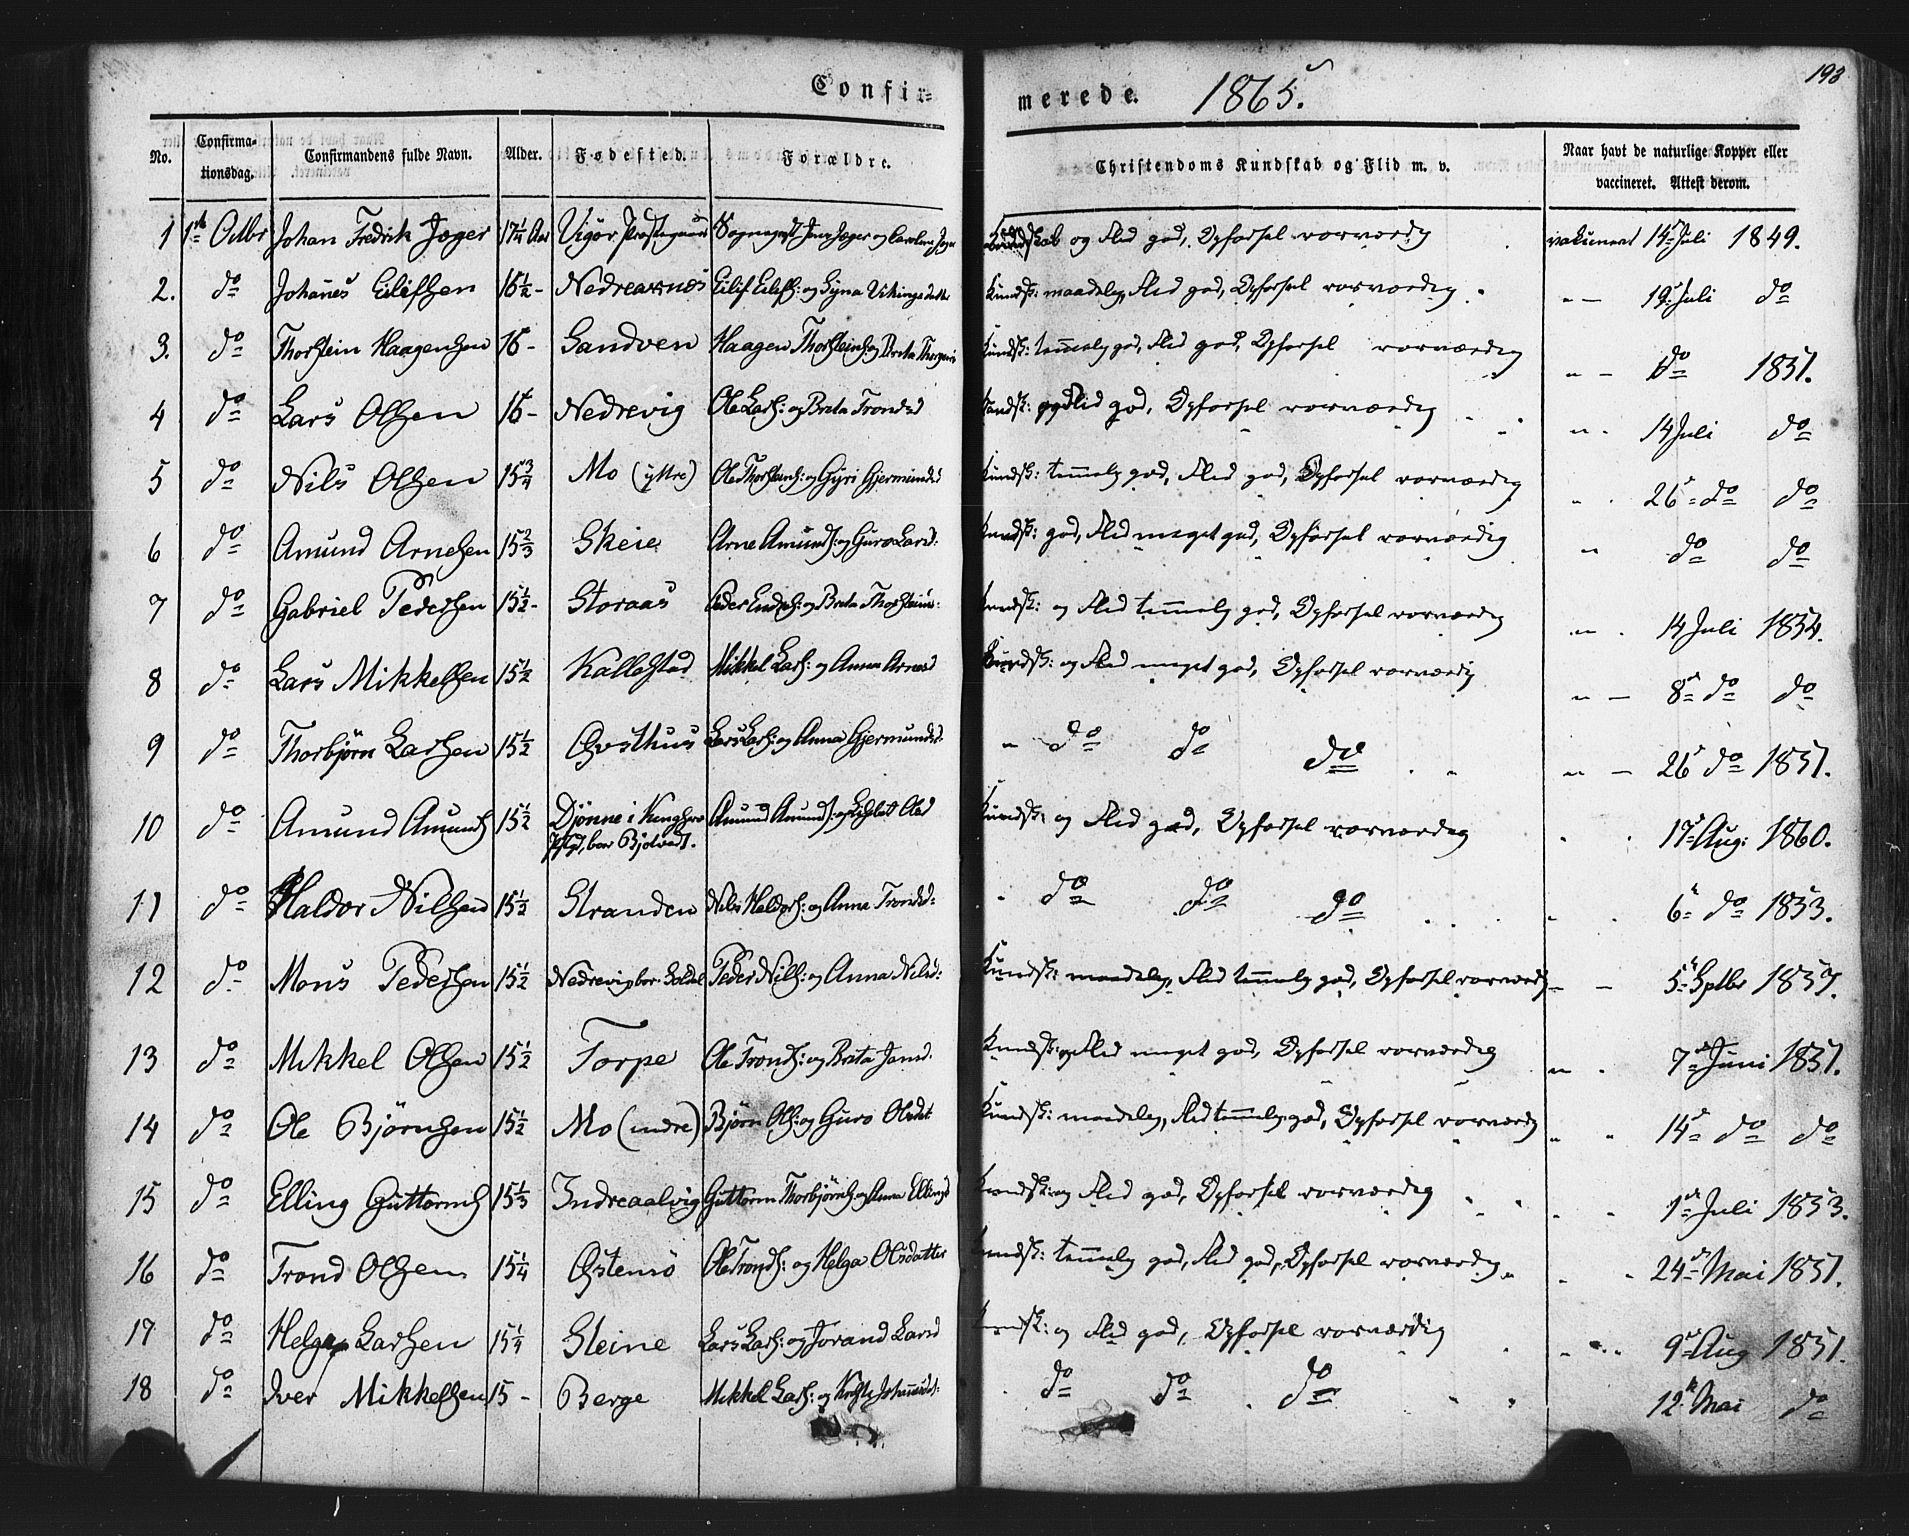 Confir= merede. 1865. 193
No. Confirma-tionsdag. Confirmandens fulde Navn. Alder. Fødested. Forældre. Christendoms Kundskab og Flid m. v. Naar havt de naturlige Kopper eller vaccineret. Attest derom.
1 1ste Octbr Johan Fredrik Jæger 17¼ Aar Vigør Sognepræst Jæger og Kundskab og Flid god, Opførsel rosværdig 14d Juli 1849.
2. do Johanes Eilifsen 16½ - Nedreaxnes Eilif Eilifs: og Vikingsdatter Kundsk: maadelig, Flid god, Opførsel rosværdig " - 19d Juli do
3. do Thorstein Haagensen 16 - Sandven Haagen Thorsteins: og Brita Kundsk: temmelig god, Flid god, Opførsel rosværdig " - do 1851.
4 do Lars Olsen 16 - Nedrevig Ole Lars: og Brita Trondsd Kundsk: og Flid god, Opførsel rosværdig " - 14 Juli do
5 do Nils Olsen 15¾ Mo (ytre) Ole Thorsteins: og Gyri Gjermundsd Kundsk: temmelig god, Flid god, Opførsel rosværdig " 26d do do
6 do Amund Arnesen 15⅔ Skeie Arne Amunds: og Guro Larsd: Kundsk: god, Flid meget god, Opførsel rosværdig " do do
7 do Gabriel Pedersen 15½ - Storaas Peder Endres: og Brita Thorsteinsd: Kundsk: og Flid temmelig god, Opførsel rosværdig " 14 Juli 1854.
8 do Lars Mikkelsen 15½ Kallestad Mikkel Lars: og Anna Arnesd Kundsk: og Flid meget god, Opførsel rosværdig " - 8d do do
9 do Thorbjørn Larsen 15½ Østhus Lars Lars: og Anna Gjermundsd: " do do do " - 26d do 1851.
10 do Amund Amunds 15½ Djønne i Amund Amunds: og Olsd Kundsk: og Flid god, Opførsel rosværdig 17d Aug: 1860.
11 do Haldor Nilsen 15½ Stranden Nils Haldors: og Anna Trondsd: do do do 6te do 1853.
12 do Mons Pedersen 15½ Nedrevig, bor Peder Nils: og Anna Nilsd: Kundsk: maadelig, Flid temmelig god, Opførsel rosværdig " - 5te Sptbr 1857.
13 do Mikkel Olsen 15½ Torpe Ole Tronds: og Brita Jonsd. Kundsk: og Flid meget god, Opførsel rosværdig " 7de Juni 1851.
14 do Ole Bjørnsen 15½ Mo (indre) Bjørn Ols: og Guro Olsdat Kundsk: maadelig, Flid temmelig god, Opførsel rosværdig " " 14d do do
15 do Elling Guttorms 15⅓ Indreaalvig Guttorm Thorbjørns: og Anna Ellingsd Kundsk: og Flid god, Opførsel rosværdig " 1ste Juli 1853.
16 do Trond Olsen 15¼ Østensø Ole Tronds: og Helga Olsdatter Kundsk: temmelig god, Flid god, Opførsel rosværdig " 24d Mai 1851.
17 do Helge Larsen 15¼ Steine Lars Lars: og Jorand Larsd Kundsk: og Flid god, Opførsel rosværdig " 9d Aug 1851.
18 do Iver Mikkelsen 15 - Berge Mikkel Lars: og do do do 12te Mai do